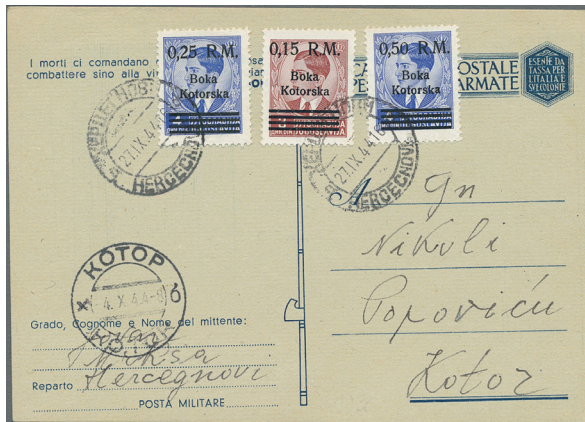 I morti ci comandano
combattere sino alla
0,25 R.M.
Boka
Kotorska
0,15 R.M.
Boka
Kotorska
0,50 R.M.
Boka
Kotorska
OSTALE
ARMATE
ESENTE DA
TASSA PER
L'ITALIA E
SUE COLONIE
27.IX.44
HERCEGNOVI
27.IX.44
HERCEGNOVI
Gn
Nikoli
Popoviću
Kotor
КОТОР
4. X 44
Grado, Cognome e Nome del mittente:
Reparto Hercegnovi
POSTA MILITARE